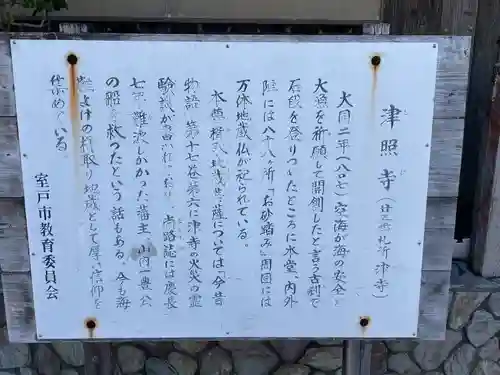 津照寺 (廿五番札所津寺)
大同二年(八〇七)空海が海の安全と
大漁を祈願して開創したと言う古刹で
石段を登りつめたところに本堂、内外
陣には八十八ヶ所「お砂踏み」周囲には
万体地蔵仏が祀られている。
本尊楫取地蔵菩薩については「今昔
物語」第十七巻第六に津寺の火災の霊
験談が
尚寺路誌には慶長
七年、難波しかかった藩主、山内一豊公
の船を救ったという話もある。今も海
上よけの楫取り地蔵として厚い信仰を
集めている。
室戸市教育委員会